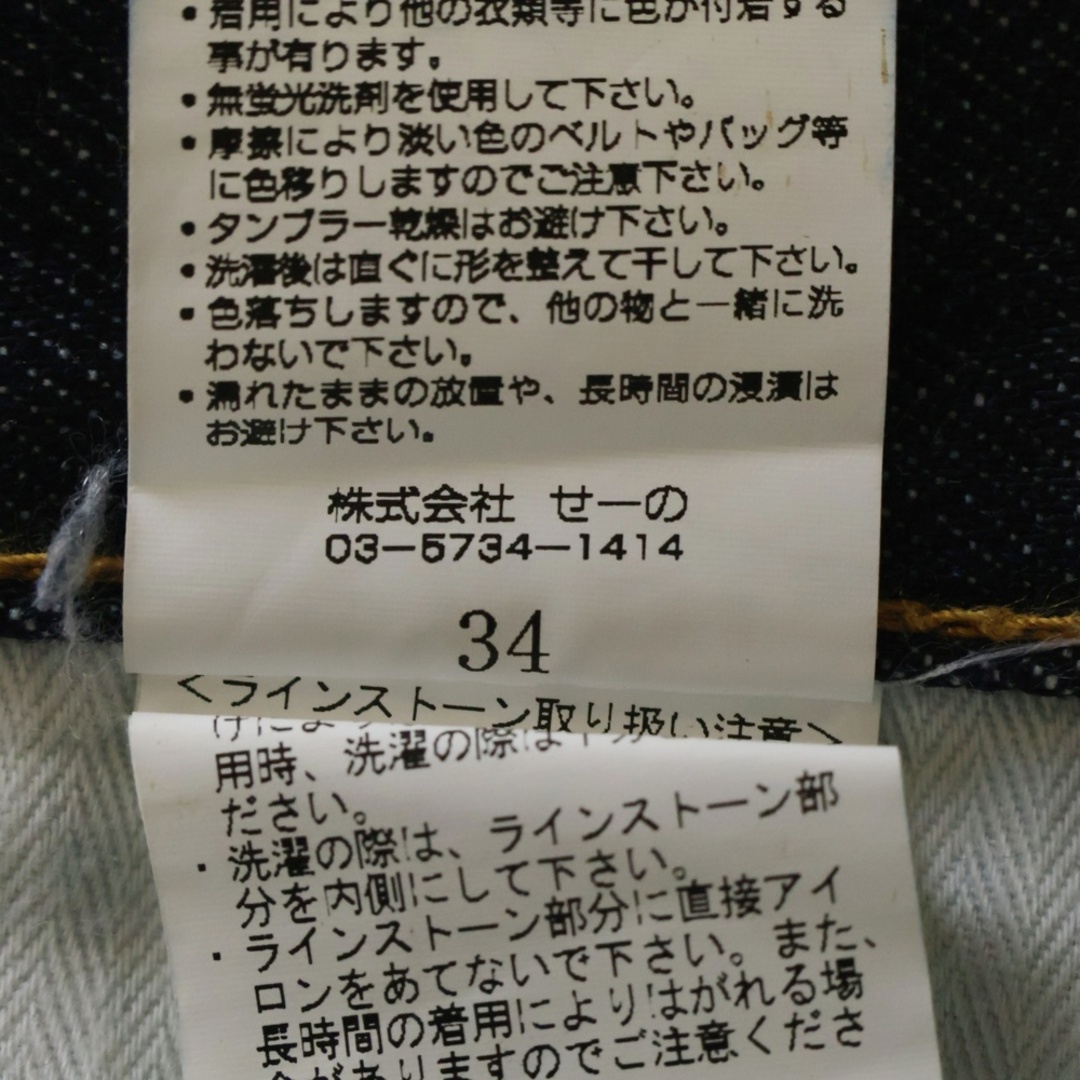 ・着用により他の衣類等に色が付着する
事が有ります。
・無蛍光洗剤を使用して下さい。
・摩擦により淡い色のベルトやバッグ等
に色移りしますのでご注意下さい。
・タンブラー乾燥はお避け下さい。
・洗濯後は直ぐに形を整えて干して下さい。
・色落ちしますので、他の物と一緒に洗
わないで下さい。
・濡れたままの放置や、長時間の浸漬は
お避け下さい。
株式会社 せーの
03-5734-1414
34
<ラインストーン取り扱い注意>
けによ
用時、洗濯の際は
ださい。
・洗濯の際は、ラインストーン部
分を内側にして下さい。
・ラインストーン部分に直接アイ
ロンをあてないで下さい。また、
長時間の着用によりはがれる場
合がありますのでご注意くださ